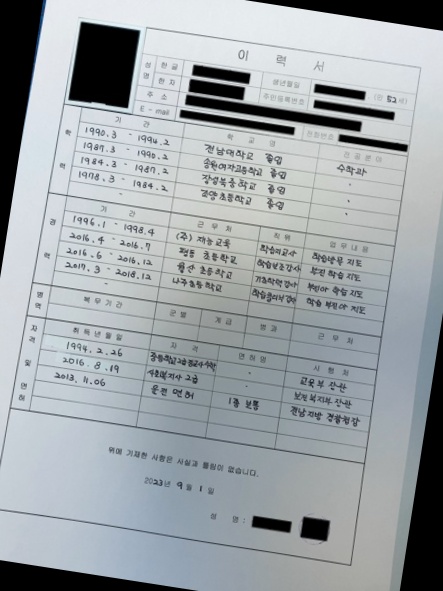 이 력 서
성 명 한글 생년월일 (만 52세)
한자 주민등록번호
주 소
E - mail 전화번호
학 력 기 간 학 교 명 전 공 분 야
1990.3 - 1994.2 전남대학교 졸업 수학과
1987.3 - 1990.2 송원여자고등학교 졸업 "
1984.3 - 1987.2 장성북중학교 졸업 "
1978.3 - 1984.2 초등학교 졸업 "
-
경 력 기 간 근 무 처 직위 업 무 내 용
1996.1 - 1998.4 (주) 재능교육 학습지교사 학습방문 지도
2016.4 - 2016.7 초등학교 학습보조강사 부진 학습 지도
2016.6 - 2016.12 초등학교 부진아 학습 지도
2017.3 - 2018.12 나주초등학교 학습 부진아 지도
-
병 역 복 무 기 간 군별 계급 병과 근 무 처
자 격 및 면 허 취 득 년 월 일 자 격 면허명 시 행 처
1994.2.26 - 교육부 장관
2016.8.19 사회복지사 2급 - 보건복지부 장관
2013.11.06 운전 면허 1종 보통 전남지방 경찰청장
위에 기재한 사항은 사실과 틀림이 없습니다.
2023년 9월 1일
성 명 :